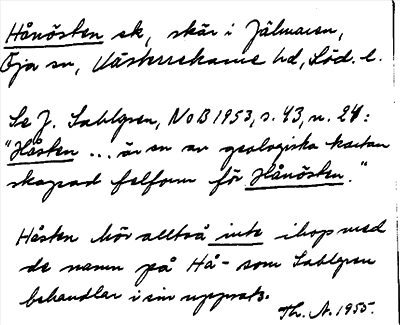 Hånösten sk, skär i Jälmaren,
Öja sn, Västerrekarne hd, Söd. l.
Se J. Sahlgren, NoB 1953, s. 43, n. 24:
"Håsten ... är en av geologiska kartan
skapad felform för Hånösten."
Håsten hör alltså inte ihop med
de namn på Hå- som Sahlgren
behandlar i sin uppsats.
Th. N. 1955.